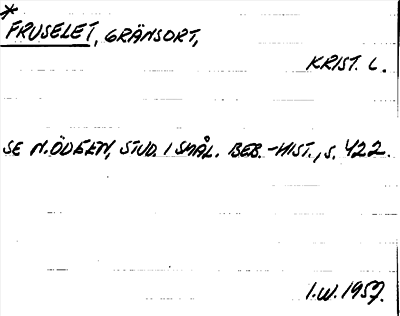 *
FRUSELET, GRÄNSORT,
KRIST. L.
SE N. ÖDEEN, STUD. I SMÅL. BEB.-HIST., S. 422.
I.W. 1957.